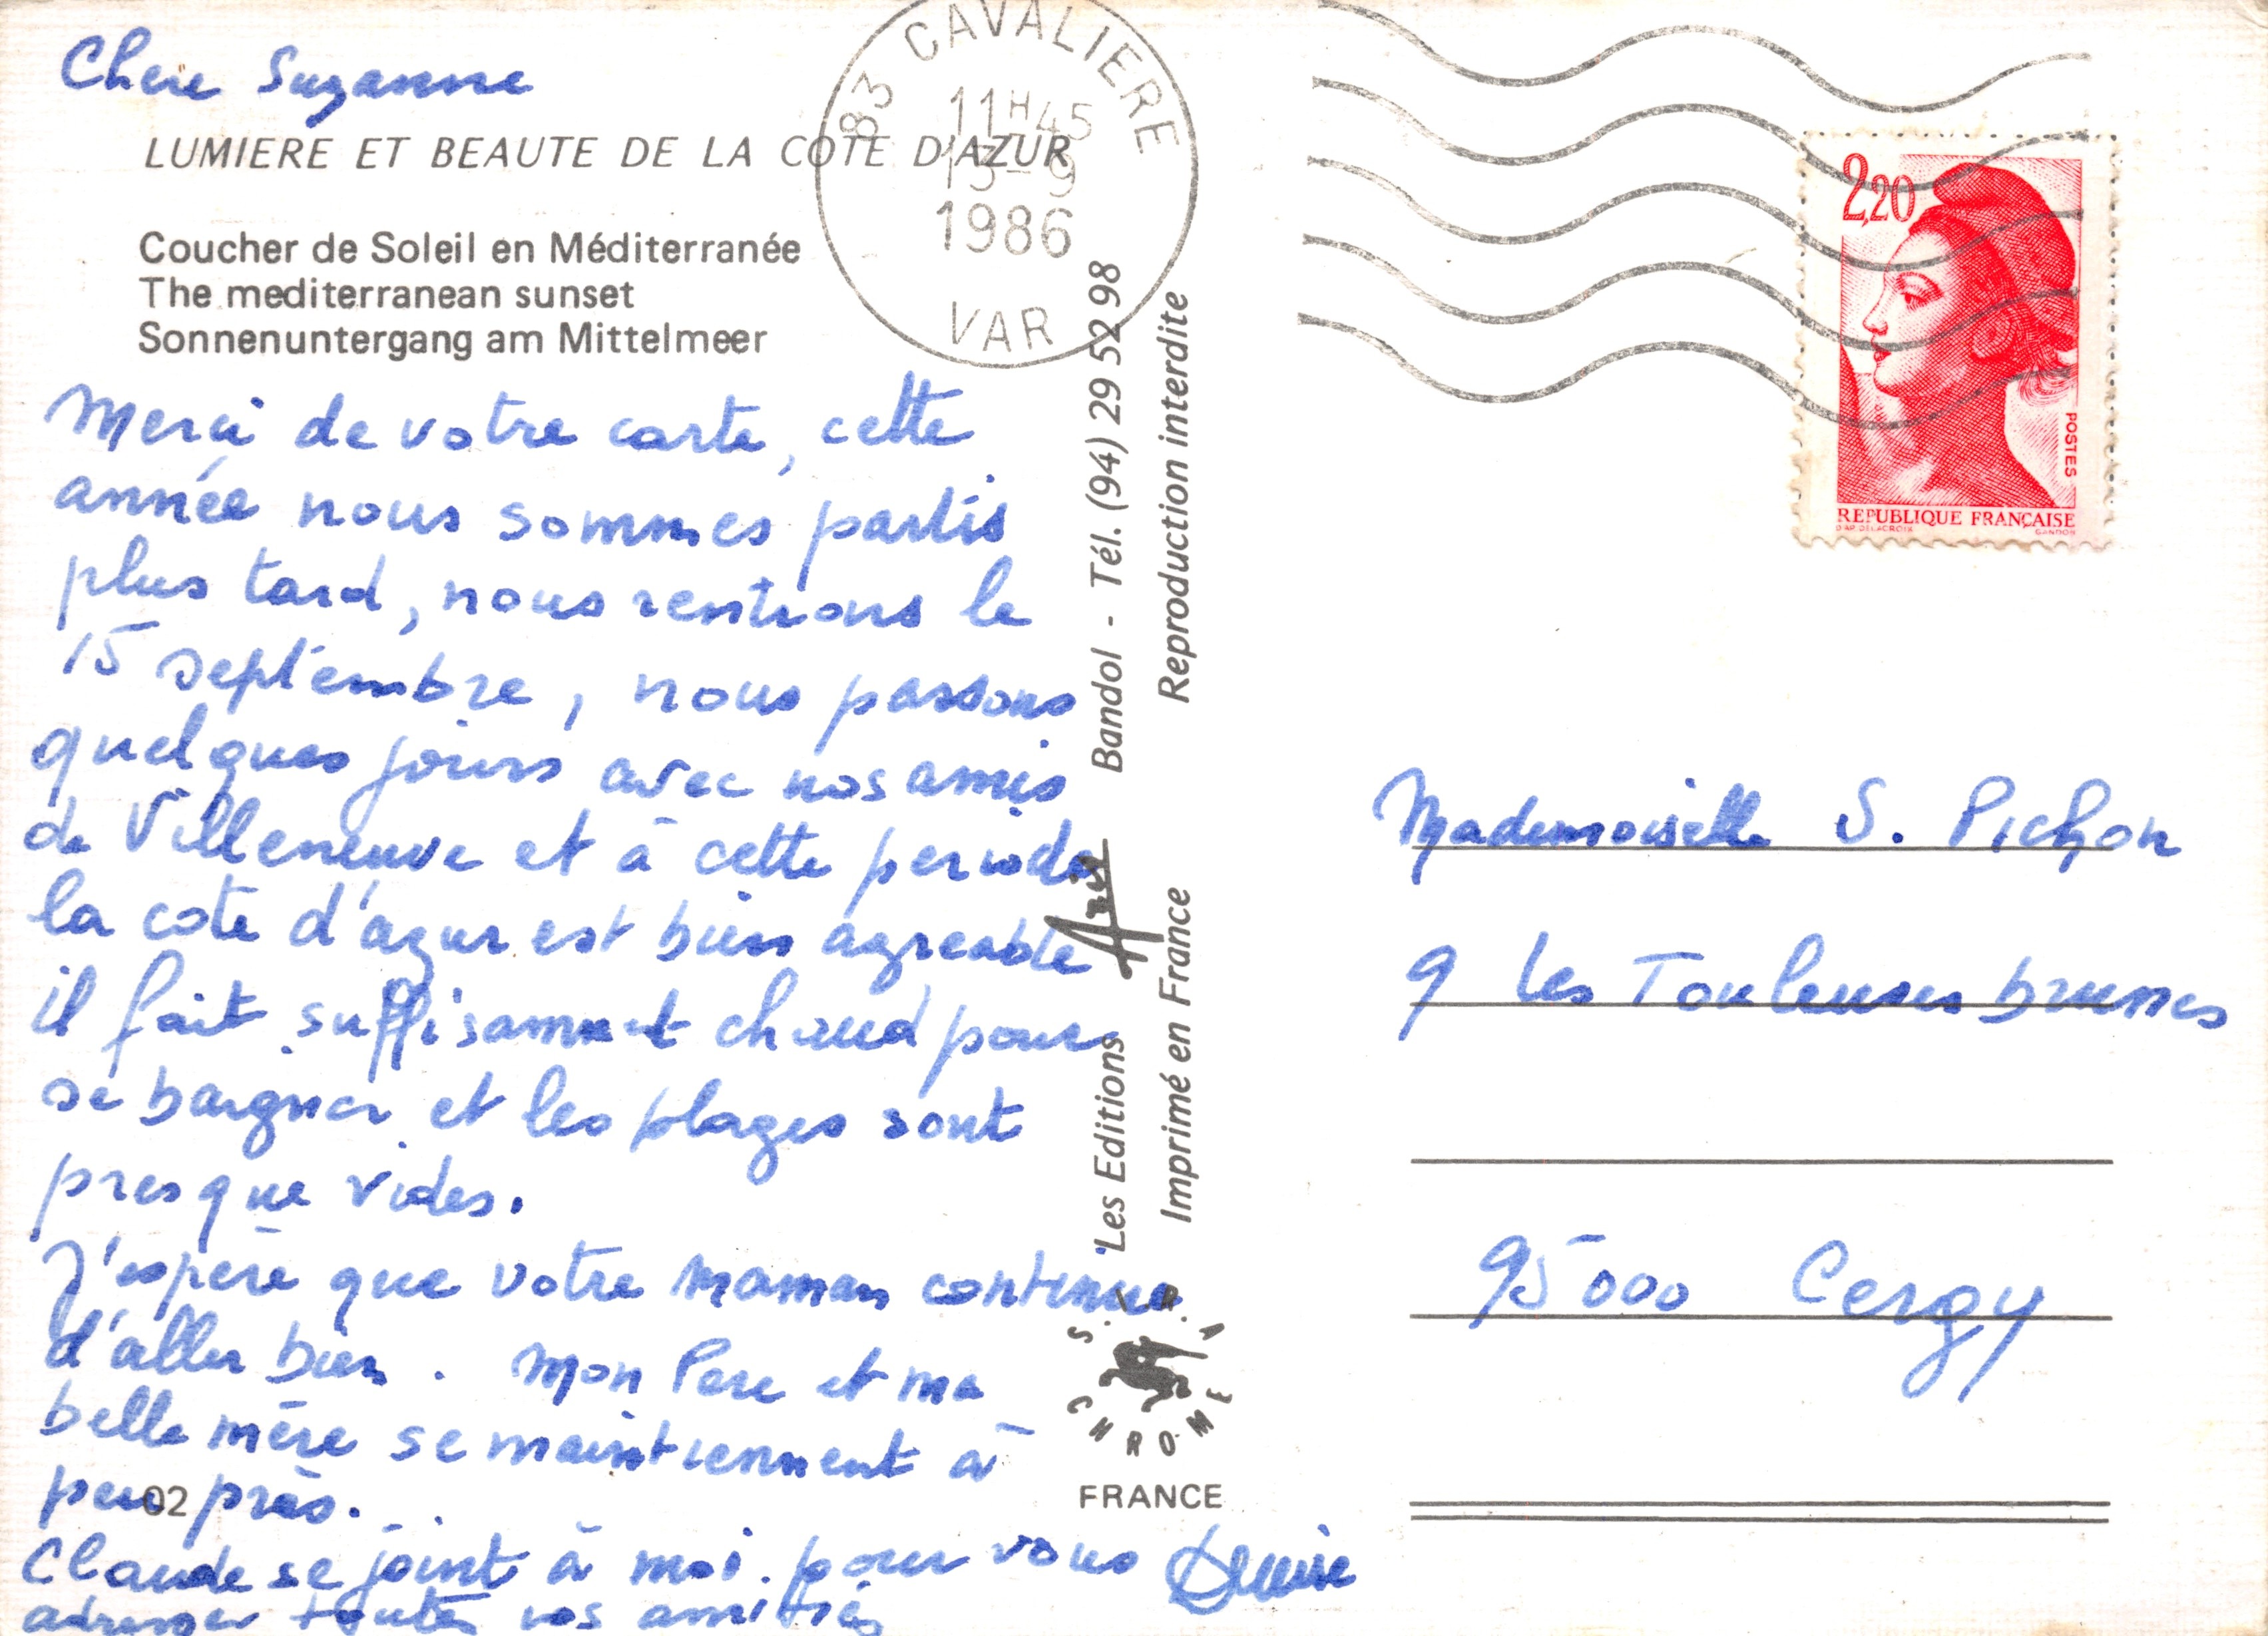 Chere Suzanne
LUMIERE ET BEAUTE DE LA COTE D'AZUR
Coucher de Soleil en Méditerranée
The mediterranean sunset
Sonnenuntergang am Mittelmeer
Merci de votre carte, cette
année nous sommes partis
plus tard, nous rentrons le
15 septembre, nous passons
quelques jours avec nos amis
de Villeneuve et à cette periode
la cote d'azur est bien agreable
il fait suffisament chaud pour
se baigner et les plages sont
presque vides.
J'espère que votre maman continue
d'aller bien. Mon Pere et ma
belle mère se maintiennent à
peu près.
02
Claude se joint à moi pour vous
adresser toutes nos amitiés
Denise
83 CAVALIERE
11H45
13-9
1986
VAR
Les Editions Aris Bandol - Tél. (94) 29 52 98
Imprimé en France Reproduction interdite
CHROME
FRANCE
2,20
POSTES
REPUBLIQUE FRANÇAISE
D'AP. DELACROIX GANDON
Mademoiselle S. Pichon
9 les Touleuses brunes
95000 Cergy